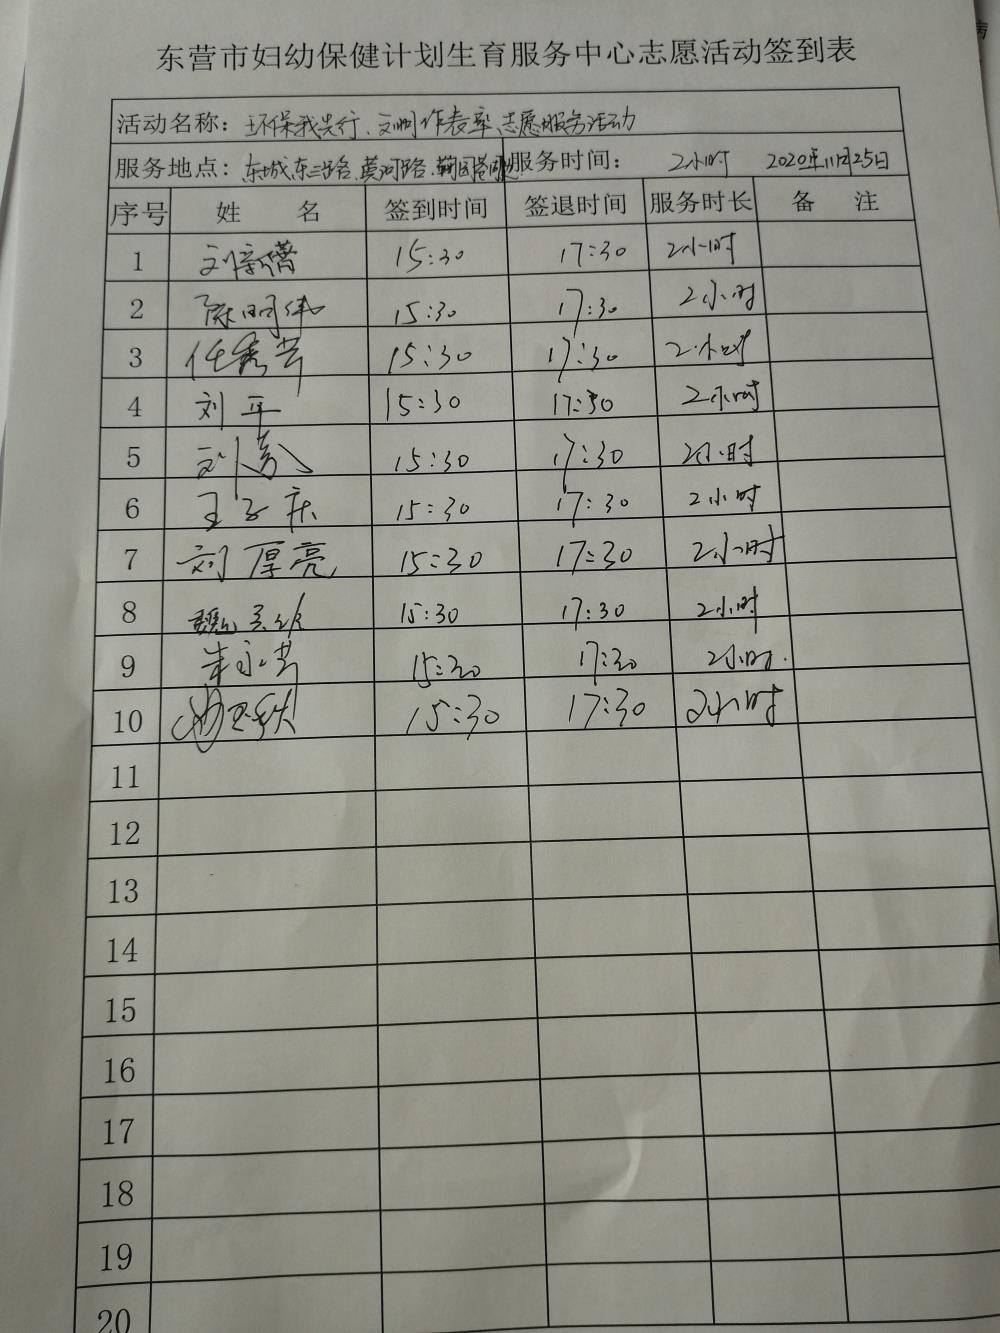 东营市妇幼保健计划生育服务中心志愿活动签到表
活动名称：环保我先行、文明作表率志愿服务活动
服务地点：东城东三路、黄河路、 服务时间： 2小时 2020年11月25日
序号 姓 名 签到时间 签退时间 服务时长 备 注
1 刘 15:30 17:30 2小时
2 陈明伟 15:30 17:30 2小时
3 任秀芳 15:30 17:30 2小时
4 刘平 15:30 17:30 2小时
5 刘芬 15:30 17:30 2小时
6 王子庆 15:30 17:30 2小时
7 刘厚亮 15:30 17:30 2小时
8 魏 15:30 17:30 2小时
9 朱永芳 15:30 17:30 2小时.
10 15:30 17:30 2小时
11
12
13
14
15
16
17
18
19
20